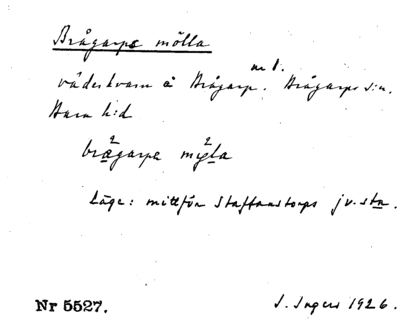 Brågarps mölla
väderkvarn å Brågarp nr 1. Brågarps s:n.
Bara h:d
brågarpa mylla
Läge: mittför Staffanstorps jv.stn.
Nr 5527. I. Ingers 1926.